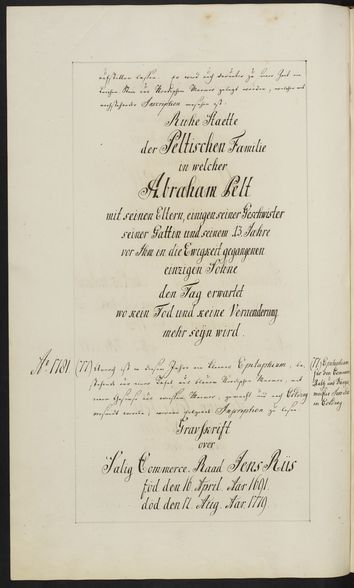 aufstellen lassen. Es wird auch darunter zu dieser Zeit ein
Stein aus Nordischen Marmor gelegt werden, welcher mit
nachstehender Inscription versehen ist.
Ruhe Staette
der Peltischen Familie
in welcher
Abraham Pelt
mit seinen Eltern, einigen seiner Geschwister
seiner Gattin und seinem 13 Jahre
vor Ihm in die Ewigkeit gegangenen
einzigen Sohne
den Tag erwartet
wo kein Tod und keine Veraenderung
mehr seÿn wird.
Ao 1781 (77) ist in diesem Jahre ein kleines Epitaphium, be-
stehend aus einer Tafel aus blauen Nordischen Marmor, mit
einem aus weissen Marmor, gemacht und nach Colding
versandt worden, worauf folgende Inscription zu lesen
(77) Epitaphium
für den Commerce
Rath und Bürge
meister Jens Riis
in Colding
Gravskrift
over
Salig Commerce. Raad Jens Riis
föd den 16 April. Aar 1691.
död den 17. Aug. Aar. 1779.